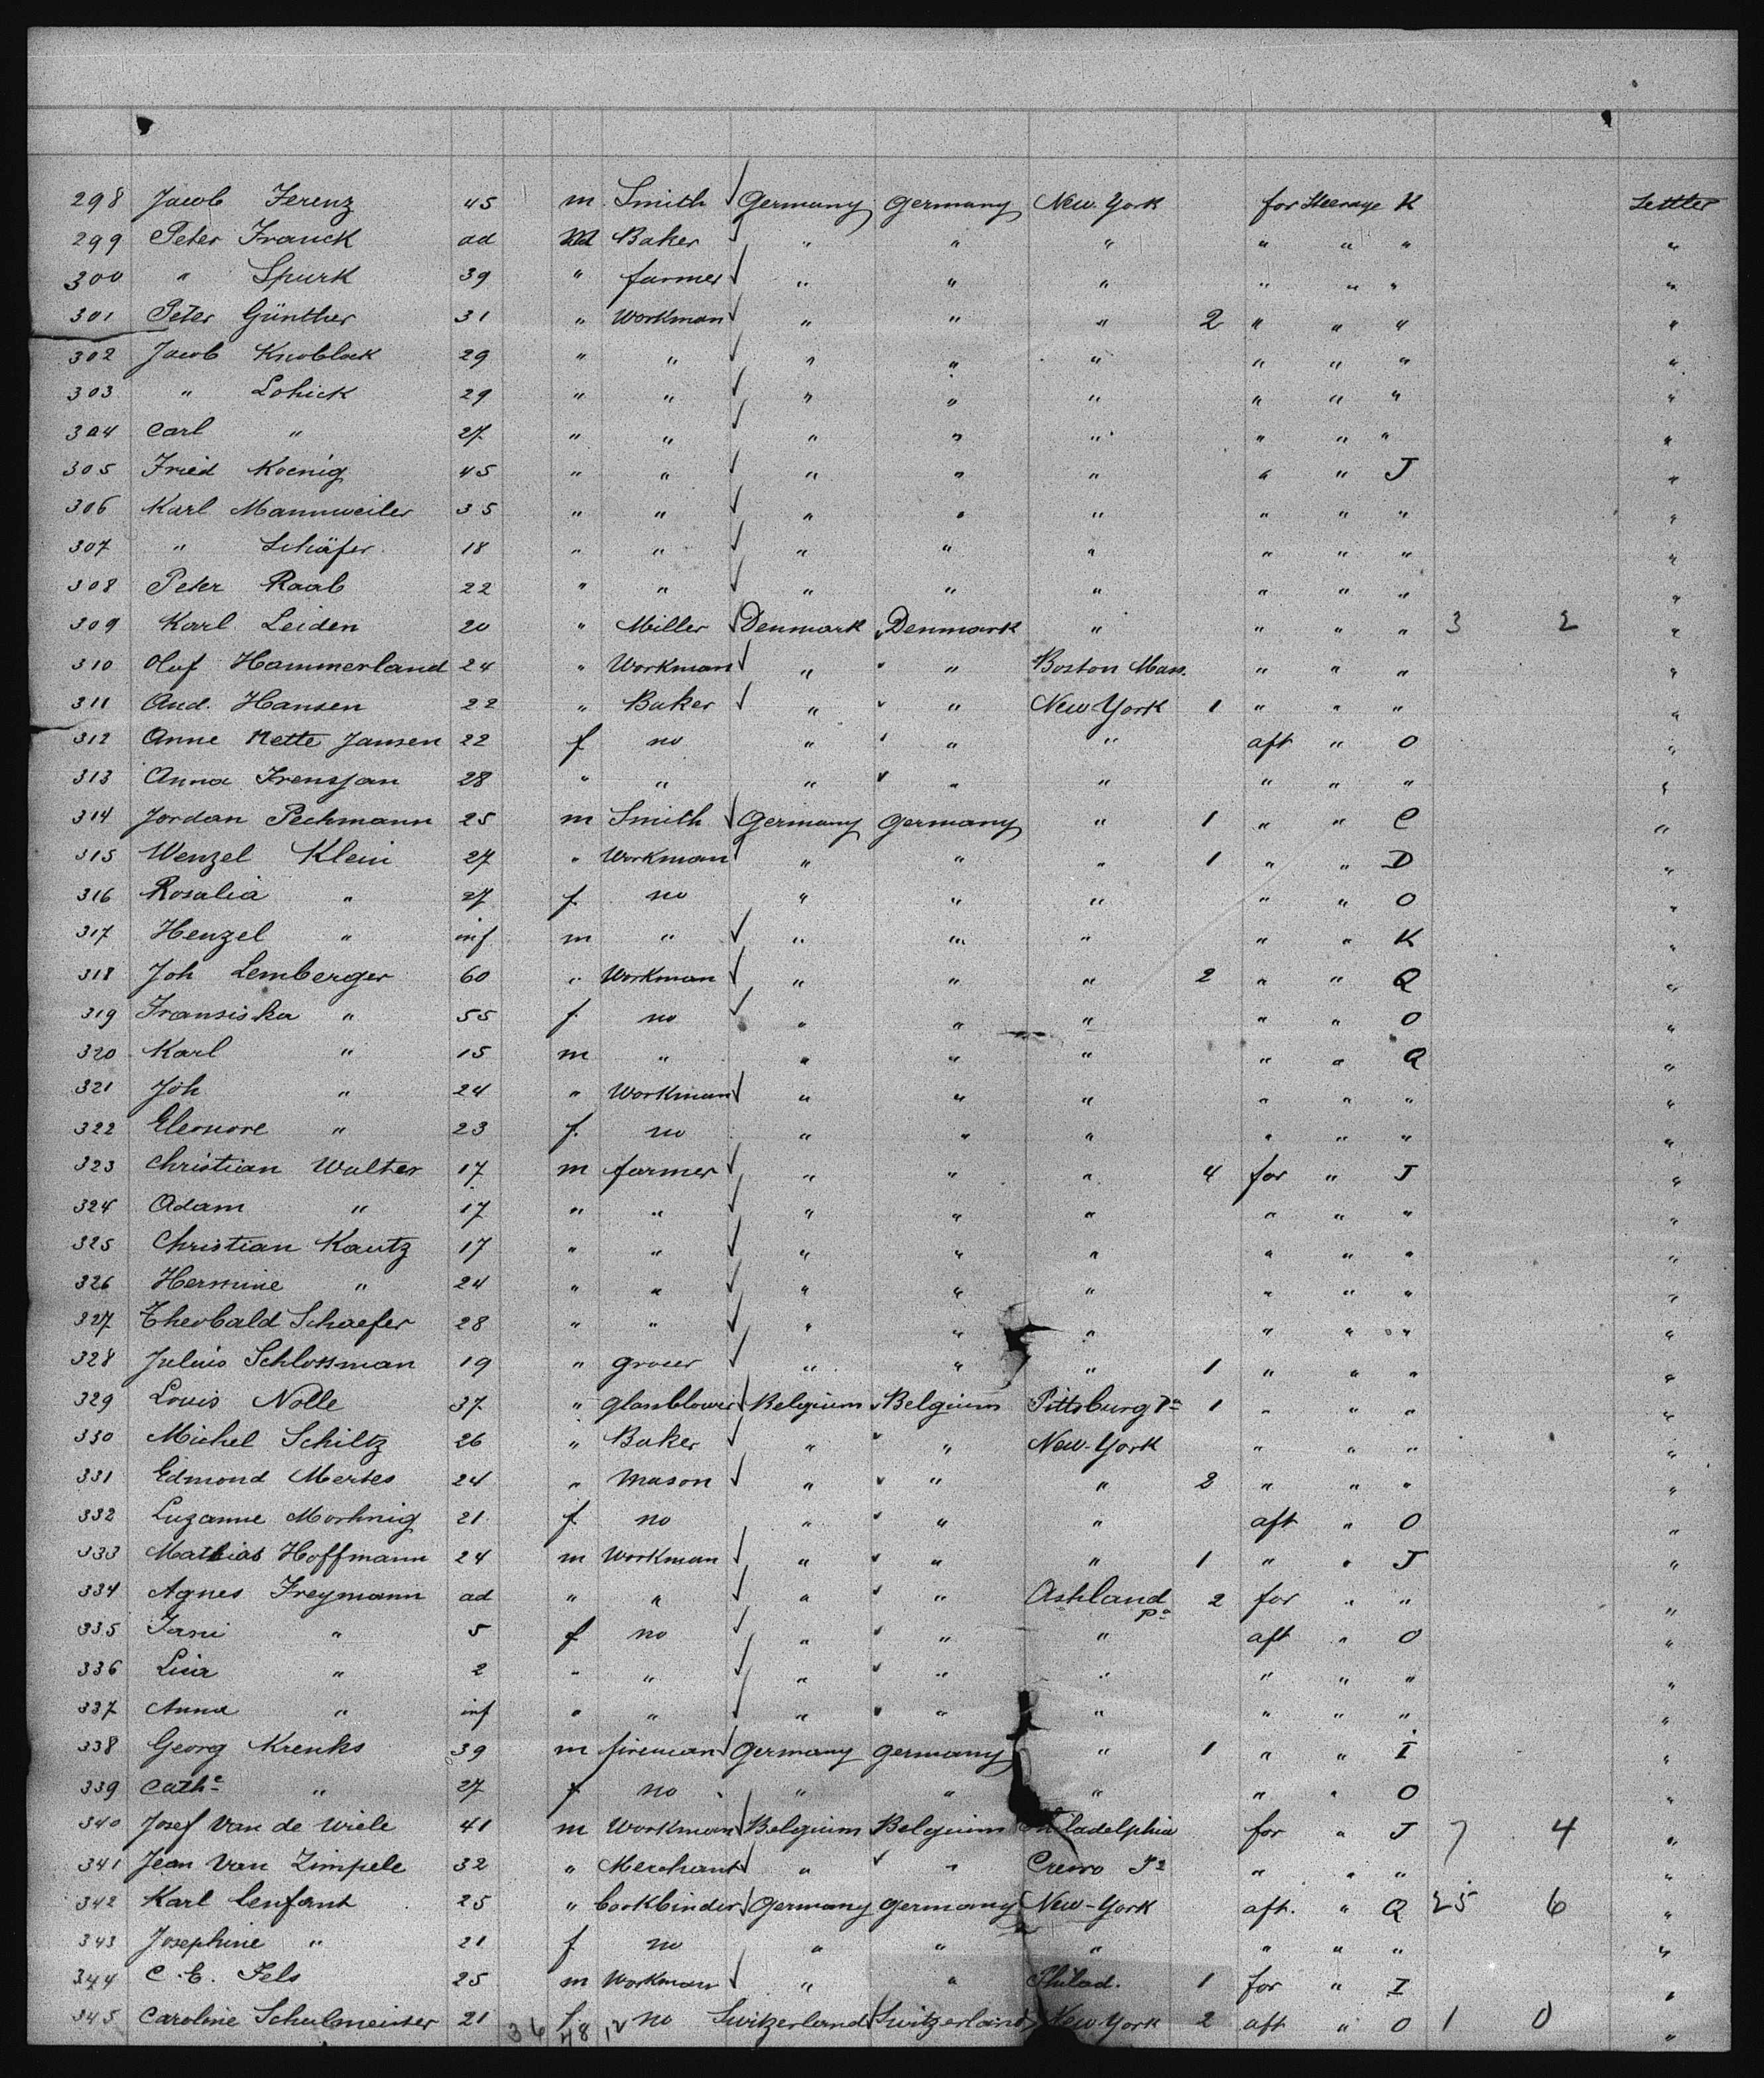 298 Jacob Ferenz 45 m Smith Germany Germany New York for Steerage K Settler
299 Peter Franck ad M Baker " " " " " " "
300 " Spurk 39 " farmer " " " " " " "
301 Peter Günther 31 " Workman " " " 2 " " " "
302 Jacob Knoblock 29 " " " " " " " " "
303 " Lohick 29 " " " " " " " " "
304 Carl " 27 " " " " " " " " "
305 Fried Koenig 45 " " " " " " " J "
306 Karl Mannweiler 35 " " " " " " " " "
307 " Schäfer 18 " " " " " " " " "
308 Peter Raab 22 " " " " " " " " "
309 Karl Leiden 20 " Miller Denmark Denmark " " " " 3 2 "
310 Oluf Hammerland 24 " Workman " " Boston Mass. " " " "
311 And. Hansen 22 " Baker " " New York 1 " " " "
312 Anne Mette Jansen 22 f no " " " aft " O "
313 Anna 28 " " " " " " " " "
314 Jordan Pechmann 25 m Smith Germany Germany " 1 " " C "
315 Wenzel Klein 27 " Workman " " " 1 " " D "
316 Rosalia " 27 f. no " " " " " O "
317 Henzel " inf m " " " " " " K "
318 Joh Lemberger 60 " Workman " " " 2 " " Q "
319 Fransiska " 55 f. no " " " " " O "
320 Karl " 15 m " " " " " " Q "
321 Joh " 24 " Workman " " " " " " "
322 Eleonore " 23 f. no " " " " " " "
323 Christian Walter 17 m farmer " " " 4 for " J "
324 Adam " 17 " " " " " " " " "
325 Christian Kautz 17 " " " " " " " " "
326 Hermine " 24 " " " " " " " " "
327 Theobald Schaefer 28 " " " " " " " " "
328 Julius Schlossman 19 " groser " " " 1 " " " "
329 Louis Nolle 37 " glassblower Belgium Belgium Pittsburg Pa 1 " " " "
330 Michel Schiltz 26 " Baker " " New-York " " " "
331 Edmond Mertes 24 " Mason " " " 2 " " " "
332 Luzanne Morhnig 21 f no " " " aft " O "
333 Mathias Hoffmann 24 m Workman " " " 1 " " J "
334 Agnes Freymann ad " " " " Ashland Pa 2 for " " "
335 " 5 f no " " " aft " O "
336 " 2 " " " " " " " " "
337 Anna " inf " " " " " " " " "
338 Georg Krenks 39 m fireman Germany Germany " 1 " " I "
339 Cathe " 27 f no " " " " " O "
340 Josef Van de Wiele 41 m Workman Belgium Belgium Philadelphia for " J 7 4 "
341 Jean Van Zimpele 32 " Merchant " " " " " "
342 Karl Lenfant 25 " bookbinder Germany Germany New-York aft. " Q 25 6 "
343 Josephine " 21 f no " " " " " " "
344 C. E. Fels 25 m Workman " " Philad. 1 for " I "
345 Caroline Schulmeister 21 f no Switzerland Switzerland New York 2 aft " O 1 0 "
36 48 12